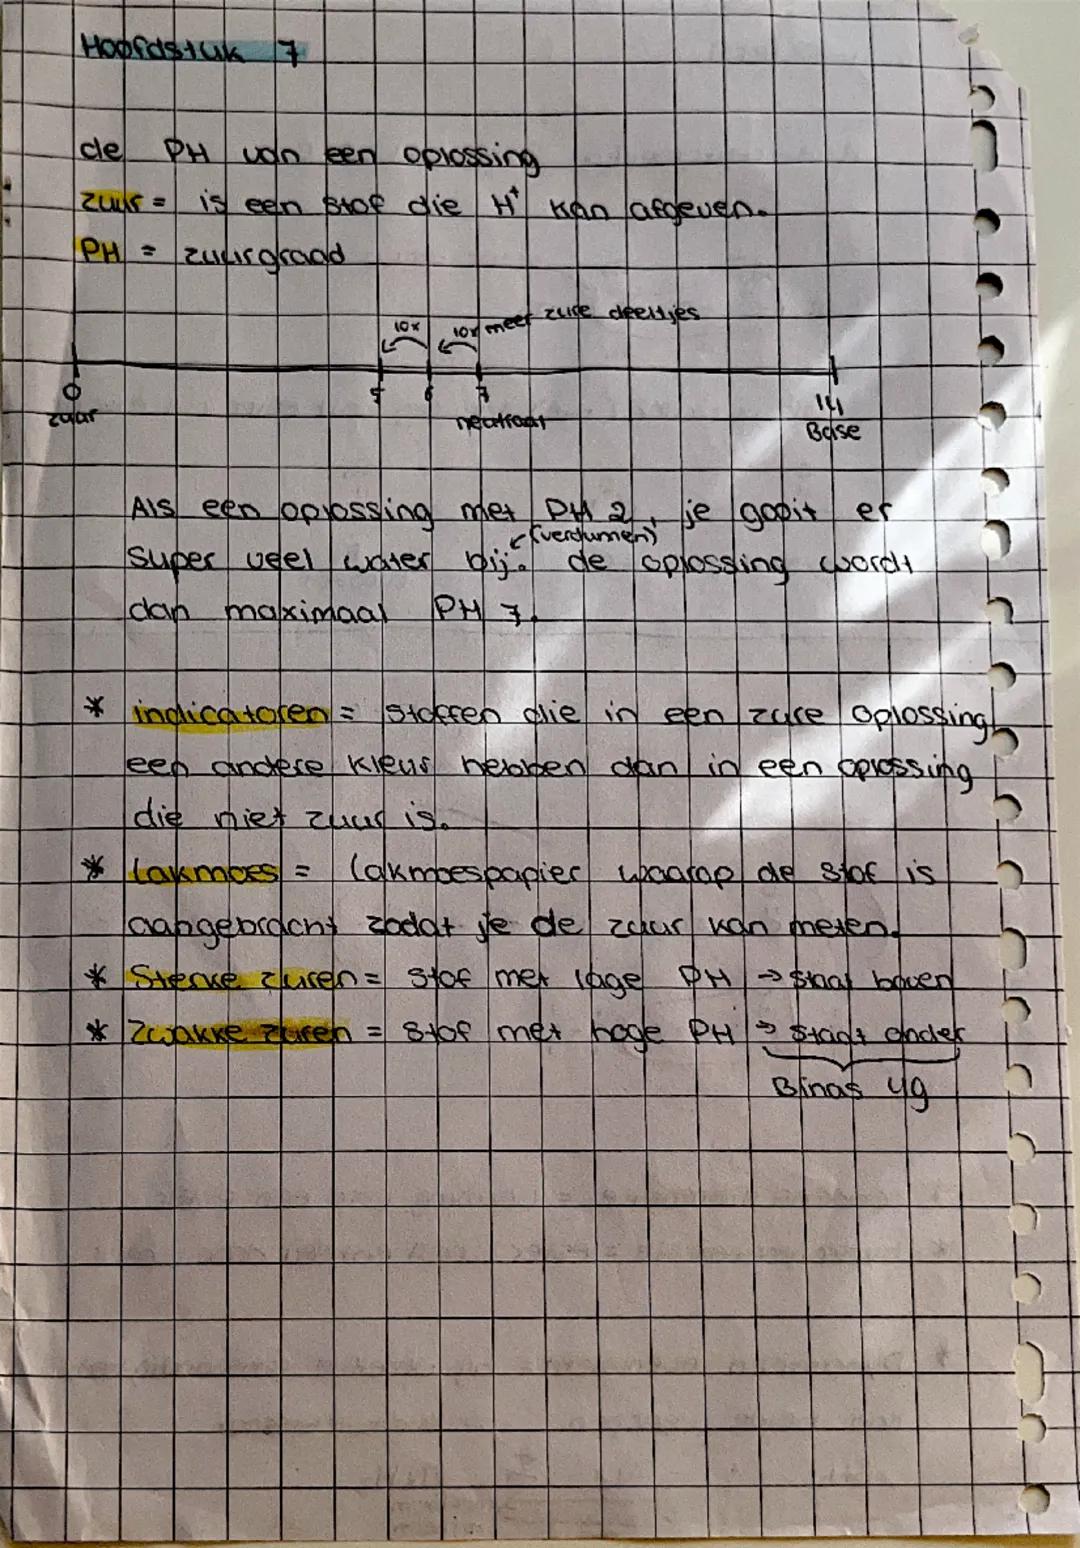 Hoofdstuk 7
de PH van een oplossing
zuur = is een stof die H⁺ kan afgeven.
PH = zuurgraad
10x 10x meer zure deeltjes
0 5 6 7 14
zuur neutraal Base
Als een oplossing met PH 2, je gooit er
(verdunnen)
super veel water bij. de oplossing wordt
dan maximaal PH 7.
* indicatoren = stoffen die in een zure oplossing
een andere kleur hebben dan in een oplossing
die niet zuur is.
* Lakmoes = lakmoespapier waarop de stof is
aangebracht zodat je de zuur kan meten.
* Sterke zuren = stof met lage PH → staat boven
* Zwakke zuren = stof met hoge PH → staat onder
Binas 49